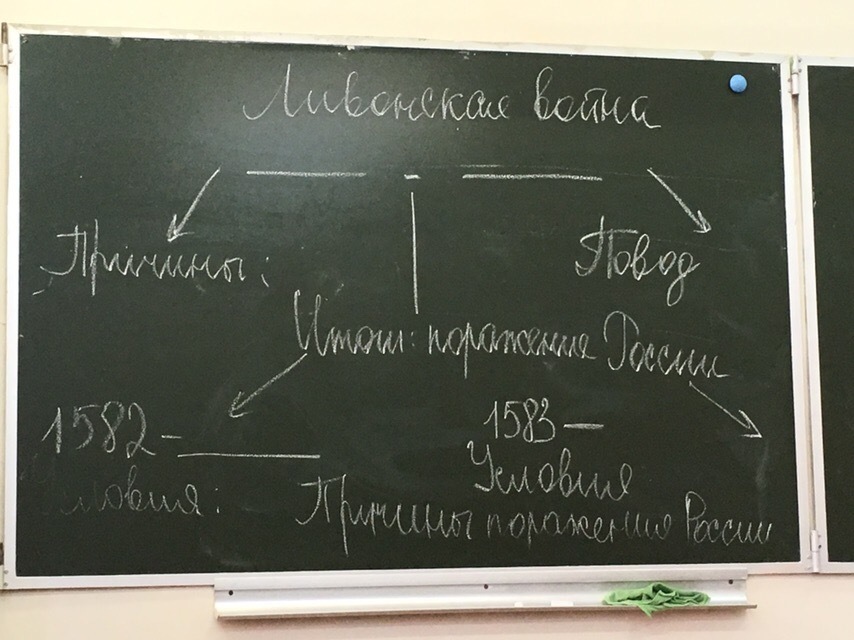 Ливонская война
Причины:
Повод
Итоги: поражение России
1582 -
1583 -
Условия:
Условия
Причины поражения России